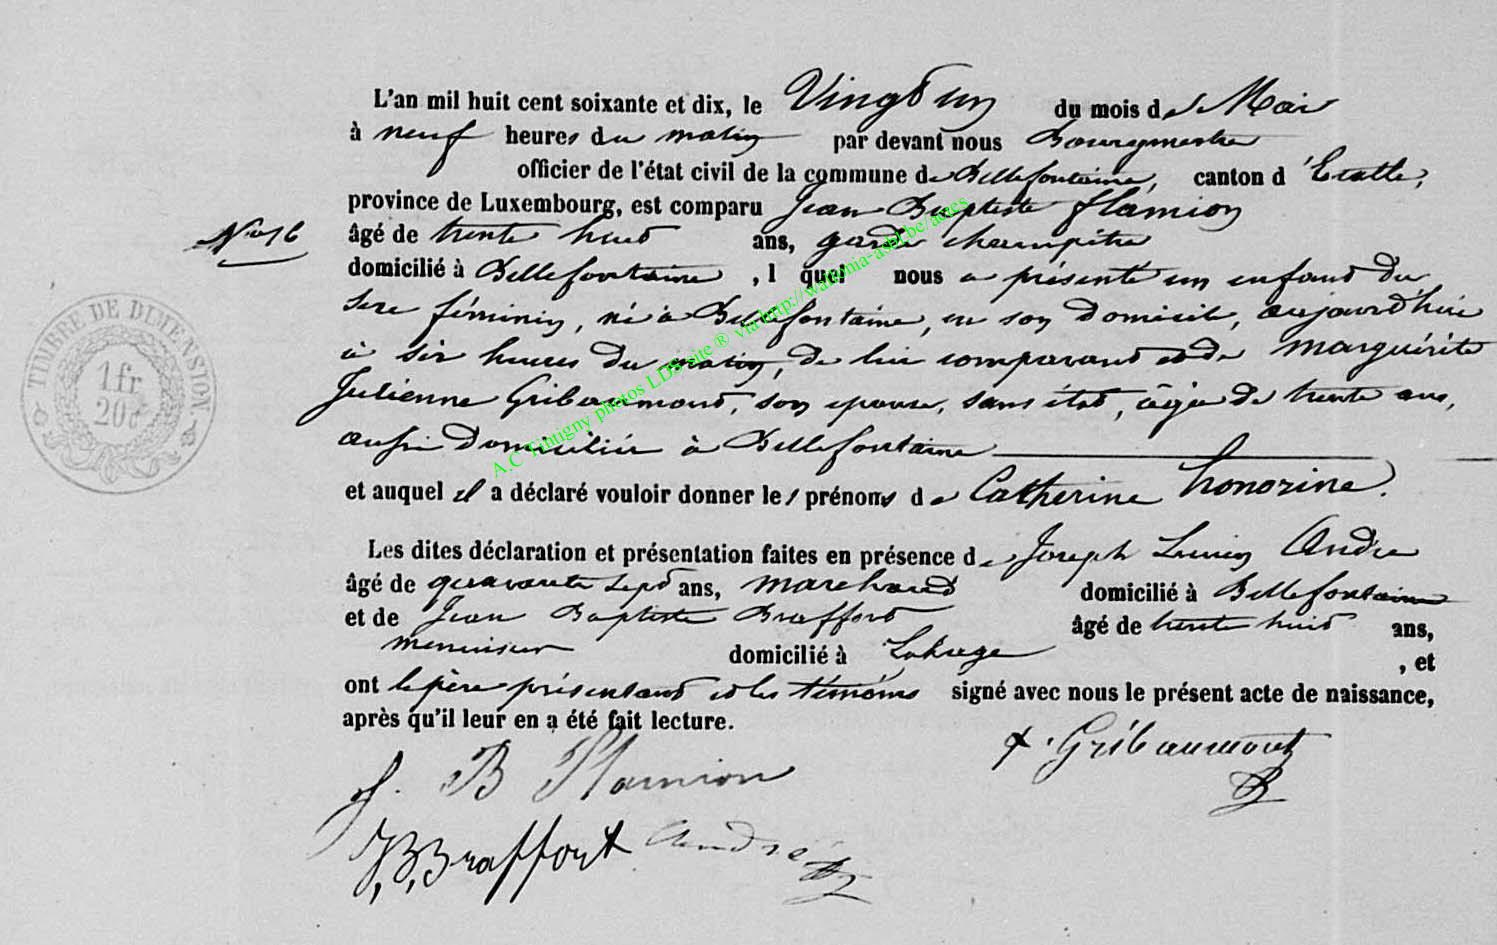 L'an mil huit cent soixante et dix, le Vingt un du mois de Mai
à neuf heures du matin par devant nous Bourgmestre
officier de l'état civil de la commune de Bellefontaine, canton d'Etalle,
province de Luxembourg, est comparu Jean Baptiste Flamion
N° 16 âgé de trente huit ans, garde champêtre
domicilié à Bellefontaine, l quel nous a présenté un enfant du
sexe féminin, né à Bellefontaine, en son domicile, aujourd'hui
à six heures du matin, de lui comparant et de Marguérite
Julienne Gribaumont, son épouse, sans état, âgée de trente ans,
aussi domiciliée à Bellefontaine
et auquel il a déclaré vouloir donner les prénoms de Catherine honorine.
Les dites déclaration et présentation faites en présence de Joseph Lucien André
âgé de quarante sept ans, marchand domicilié à Bellefontaine
et de Jean Baptiste Braffort âgé de trente huit ans,
menuisier domicilié à Lahage, et
ont le père présentant et les témoins signé avec nous le présent acte de naissance,
après qu'il leur en a été fait lecture.
J. B Flamion
Gribaumont
J,B,Braffort André
TIMBRE DE DIMENSION.
1 fr
20c
A.C Tintigny photos LDS site ® via http://wallonia-asbl.be/actes